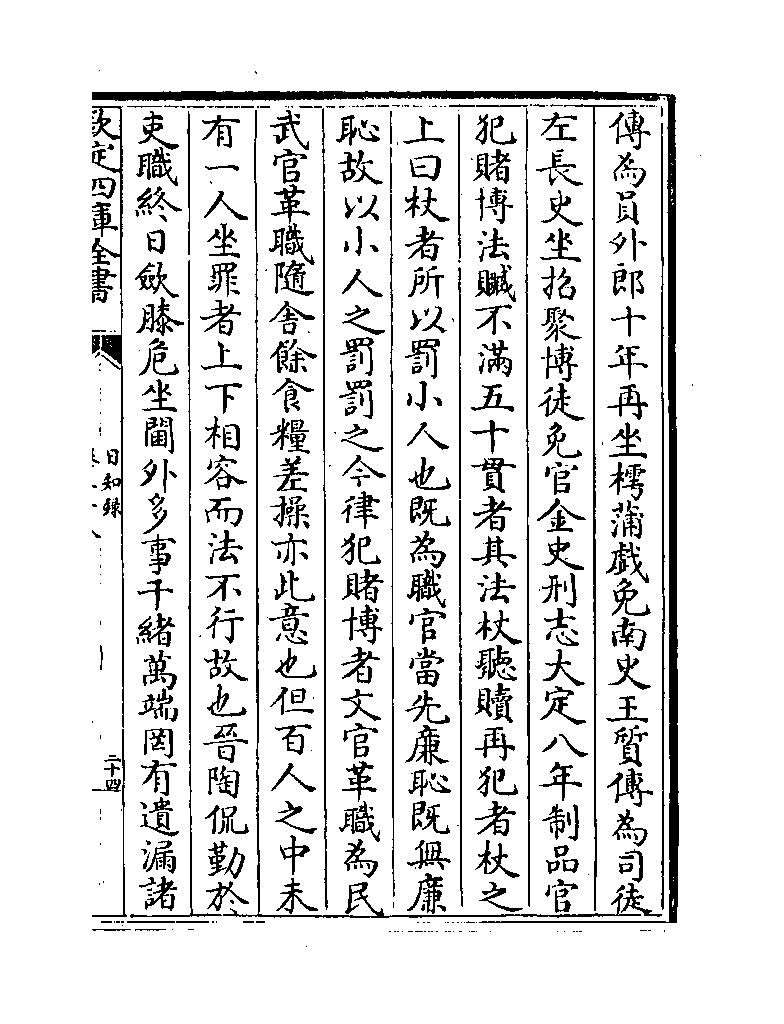 傳為員外郎十年再坐樗蒲戲免南史王質傳為司徒
左長史坐招聚博徒免官金史刑志大定八年制品官
犯賭博法贓不滿五十貫者其法杖聽贖再犯者杖之
上曰杖者所以罰小人也既為職官當先廉恥既無廉
恥故以小人之罰罰之今律犯賭博者文官革職為民
武官革職隨舍餘食糧差操亦此意也但百人之中未
有一人坐罪者上下相容而法不行故也晉陶侃勤於
吏職終日斂膝危坐閫外多事千緒萬端罔有遺漏諸
欽定四庫全書
日知錄
二十四